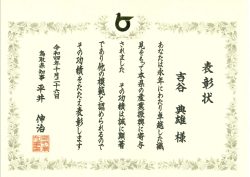 表彰状
吉谷 典雄 様
あなたは永年にわたり卓越した識
見をもって本県の産業振興に寄与
されました その功績は誠に顕著
であり他の模範と認められるので
その功績をたたえ表彰します
令和四年十月二十六日
鳥取県知事 平井 伸治